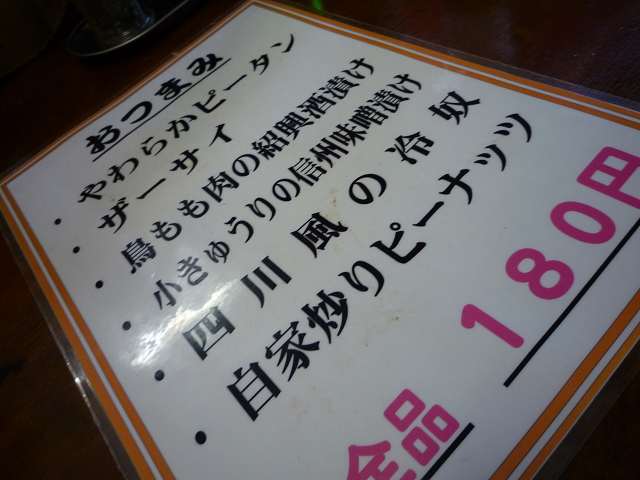 おつまみ
・やわらかピータン
・ザーサイ
・鳥もも肉の紹興酒漬け
・小きゅうりの信州味噌漬け
・四川風の冷奴
・自家炒りピーナッツ
全品 180円